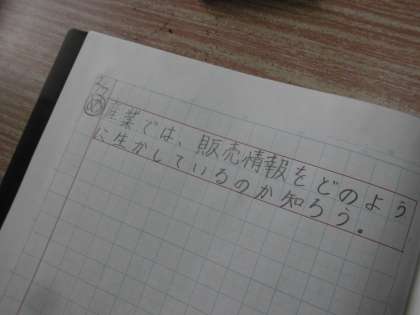 め 産業では、販売情報をどのよう
に生かしているのか知ろう。